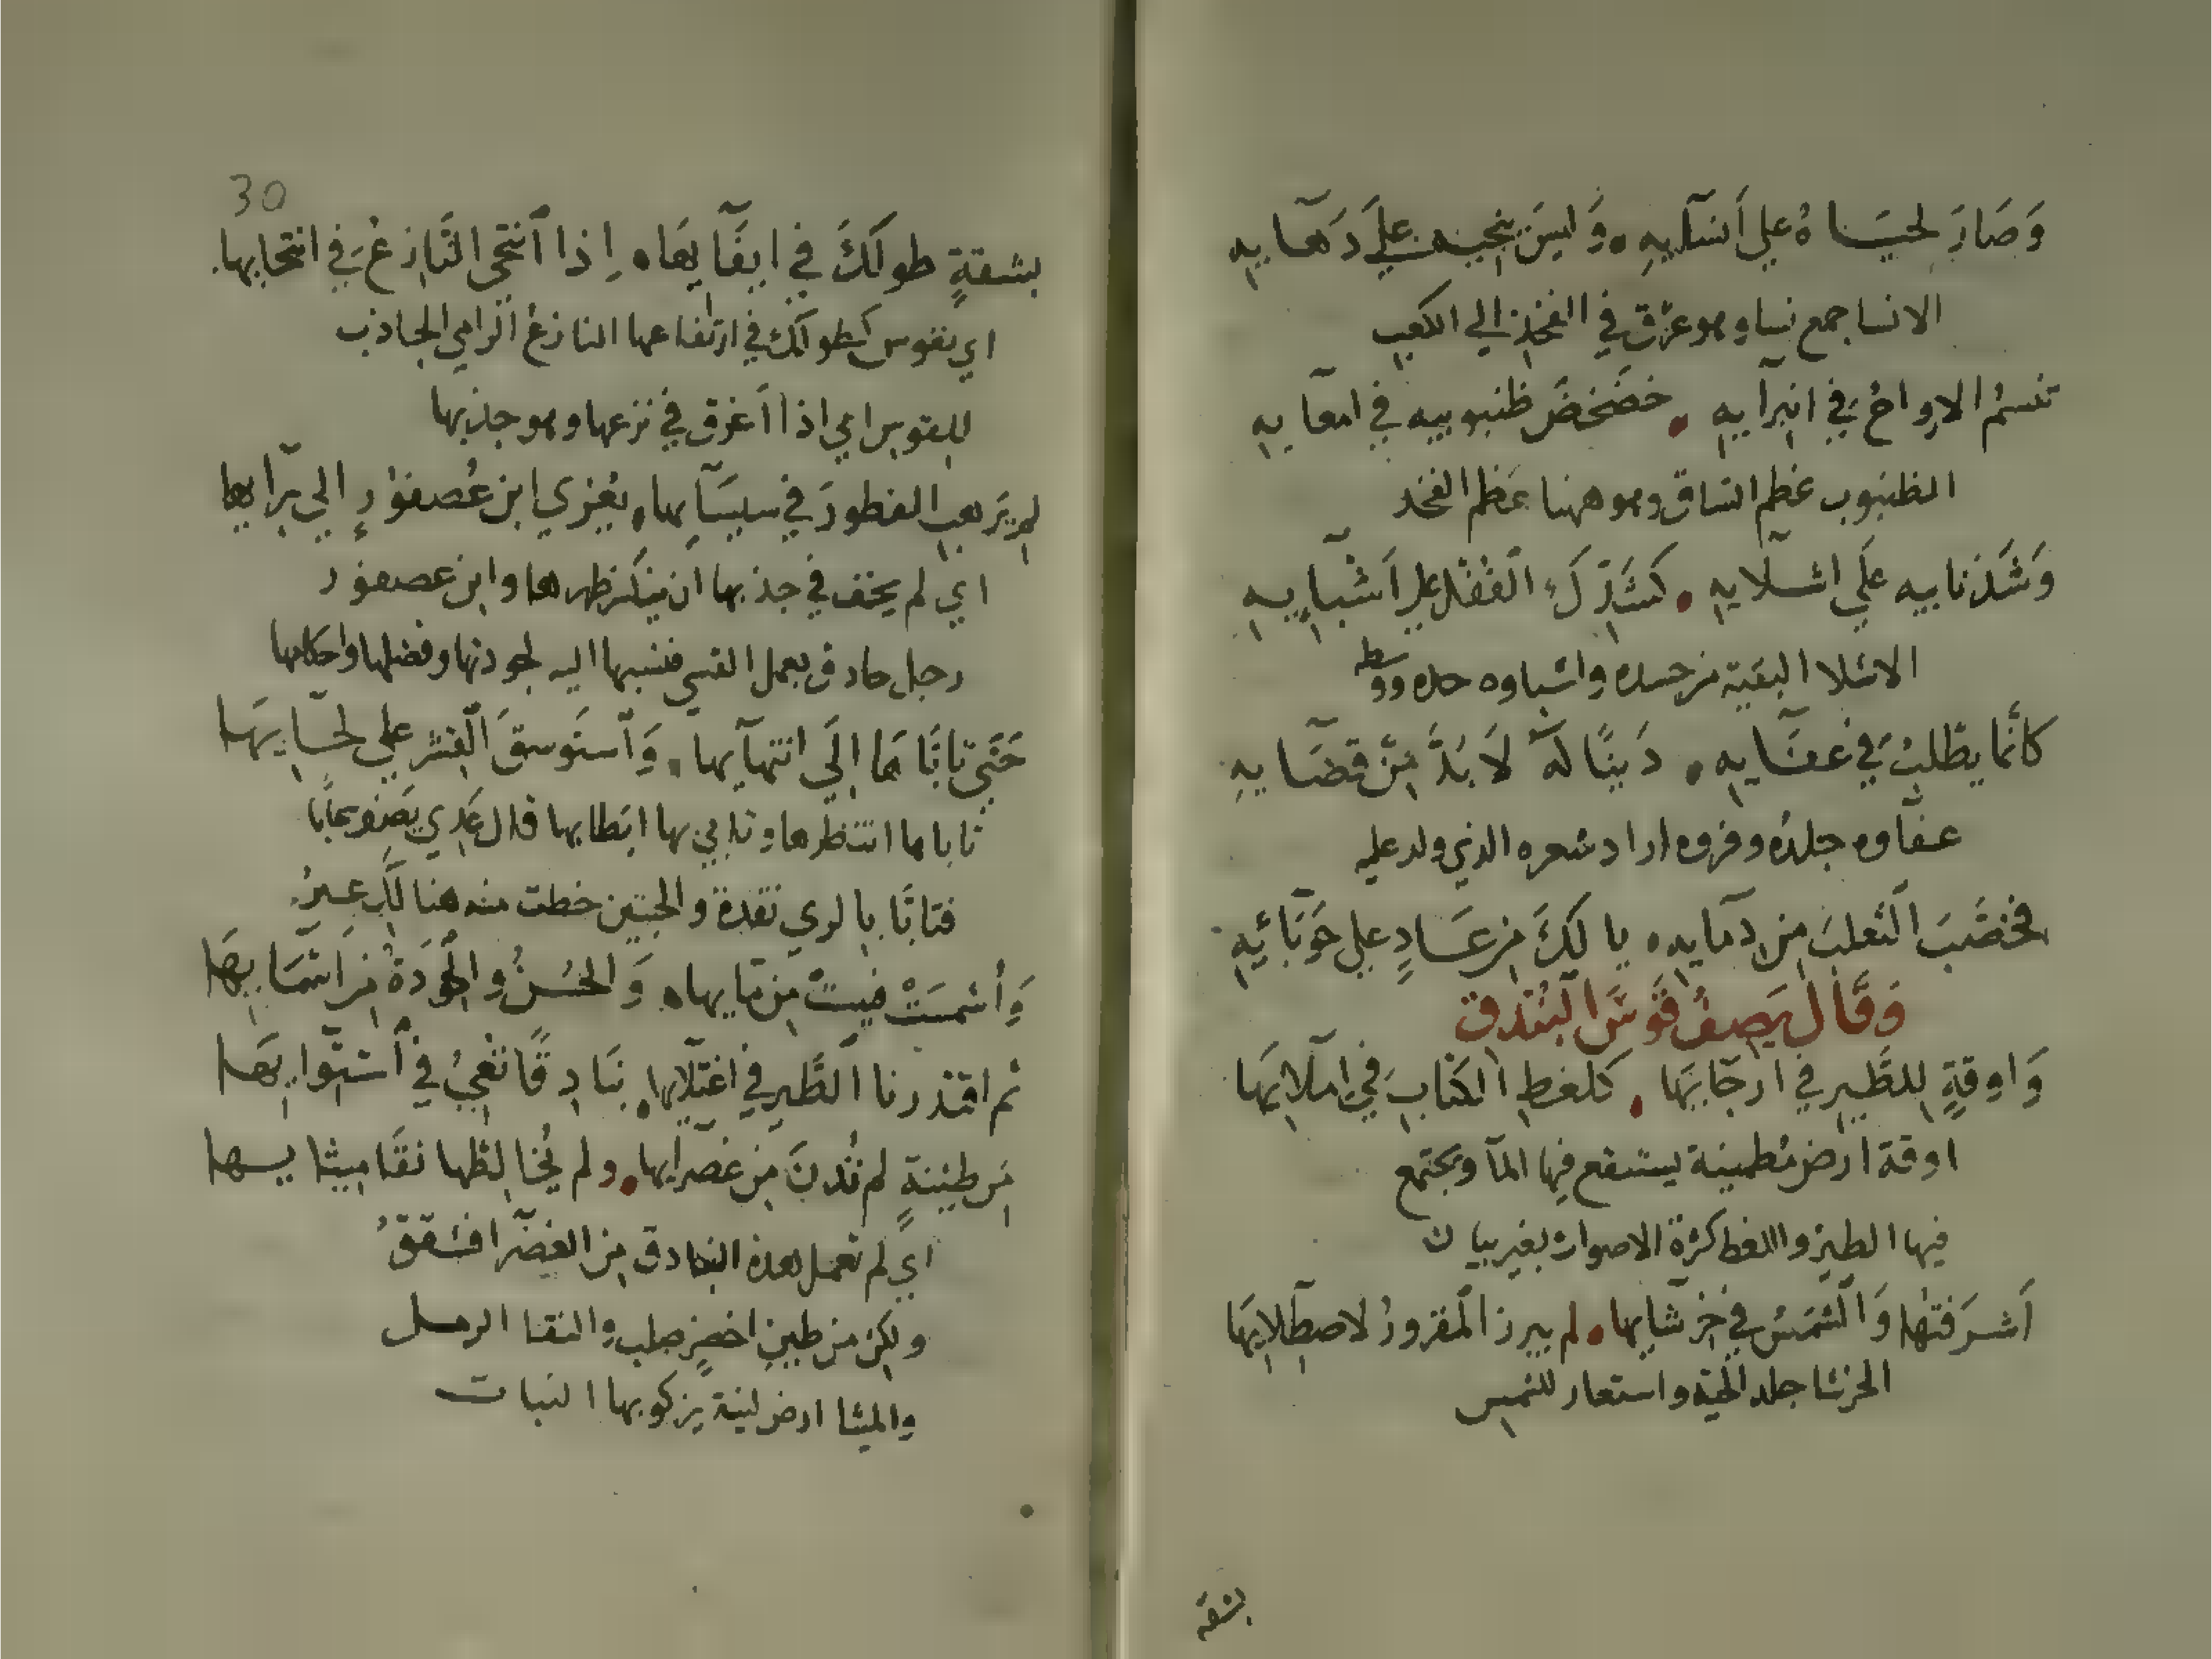 وَصَارَ لحيَاهُ علي أنسَآيهِ ۰ وَليسَ ينجيه علَي دَهَآيهِ
الانسا جمع نسا وهو عرق في الفخذ الي الكعب
تنسمُ الارواحُ في انبرآيهِ ۰ خضخضَ ظنبوبيه في امعآيهِ
الظنبوب عظم الساق وهو ههنا عظم الفخد
وَشَدَّ نابيه علَي اشلايهِ ۰ كشَدِّكَ القفل علي اَشبآيهِ
الاشلا البقية من جسده واشباوه حده ووسطه
كأنَّما يطلبُ في عفَآيهِ ۰ دَينًا لهُ لَا بُدَّ مِنْ قضَآيهِ
عفاوه جلده وفروه اراد شعره الذي ولد عليه
فخضَّبَ الثعلبَ من دمآيهِ ۰ يا لكَ من عَادٍ علي حَوبَآئِهِ
وَقَالَ يَصِفُ قَوسَ البُندق
وَاوقةٍ للطَّيرِ في ارجَآيهَا ۰ كلغطِ الكتابِ في املآيهَا
اوقة ارض مُطمينة يستنقع فيها المآ ويجتمع
فيها الطير واللغط كثرة الاصوات بغير بيان
أشرَفتهَا وَالشمسُ في خرشآيها ۰ لم يبرز المقرورُ لاصطلآيهَا
الخرشا جلد الحية واستعار للشمس
بشقة
30
بشقةٍ طولَكَ في ايفَآيهَا ۰ اِذا اَنتحي النَّازعُ في انتحايها
اي بقوس كطولك في ارتفاعها النازعُ الرامي الجاذب
للقوس اي اذا اغرق في نزعها وهو جذبها
لم يَرهب الفطورَ في سيسَآيها ۰ يُعزي ابن عُصفورٍ الي برَآيها
اي لم يخف في جذبها ان ينكسر ظهرها وابن عصفور
رجل حادق بعمل القسي فنسبها اليه لجودتها وفضلها واحكامها
حَتي تأيَّاهَا الَي انتهآيها ۰ وَاستَوسقَ القشر علي لحَآيهَا
تاياها انتظرها وتايي بها ابطابها قال عدي يَصف سحابًا
فتايَّا بالوي نقدة والجبتين خطت منه هنالك عيرُ
وَأُشمسَتْ فيبسَتْ من مآيها ۰ وَالحُسنُ والجَودَةُ من اَسمآيهَا
ثم اقتدرنا الطَّير في اعتلآيها ۰ بنَادقًا تُعجبُ في اُستوآيهَا
من طينةٍ لم تُدنَ من غضرآيها ۰ ولم يُخالطها نقَا ميثايها
اي لم تعمل هذه البنادق من الغضرا فتشققُ
ولكن من طينٍ اخضر صلب والنقا الرمل
والميثا ارض لينة يزكو بها النبات